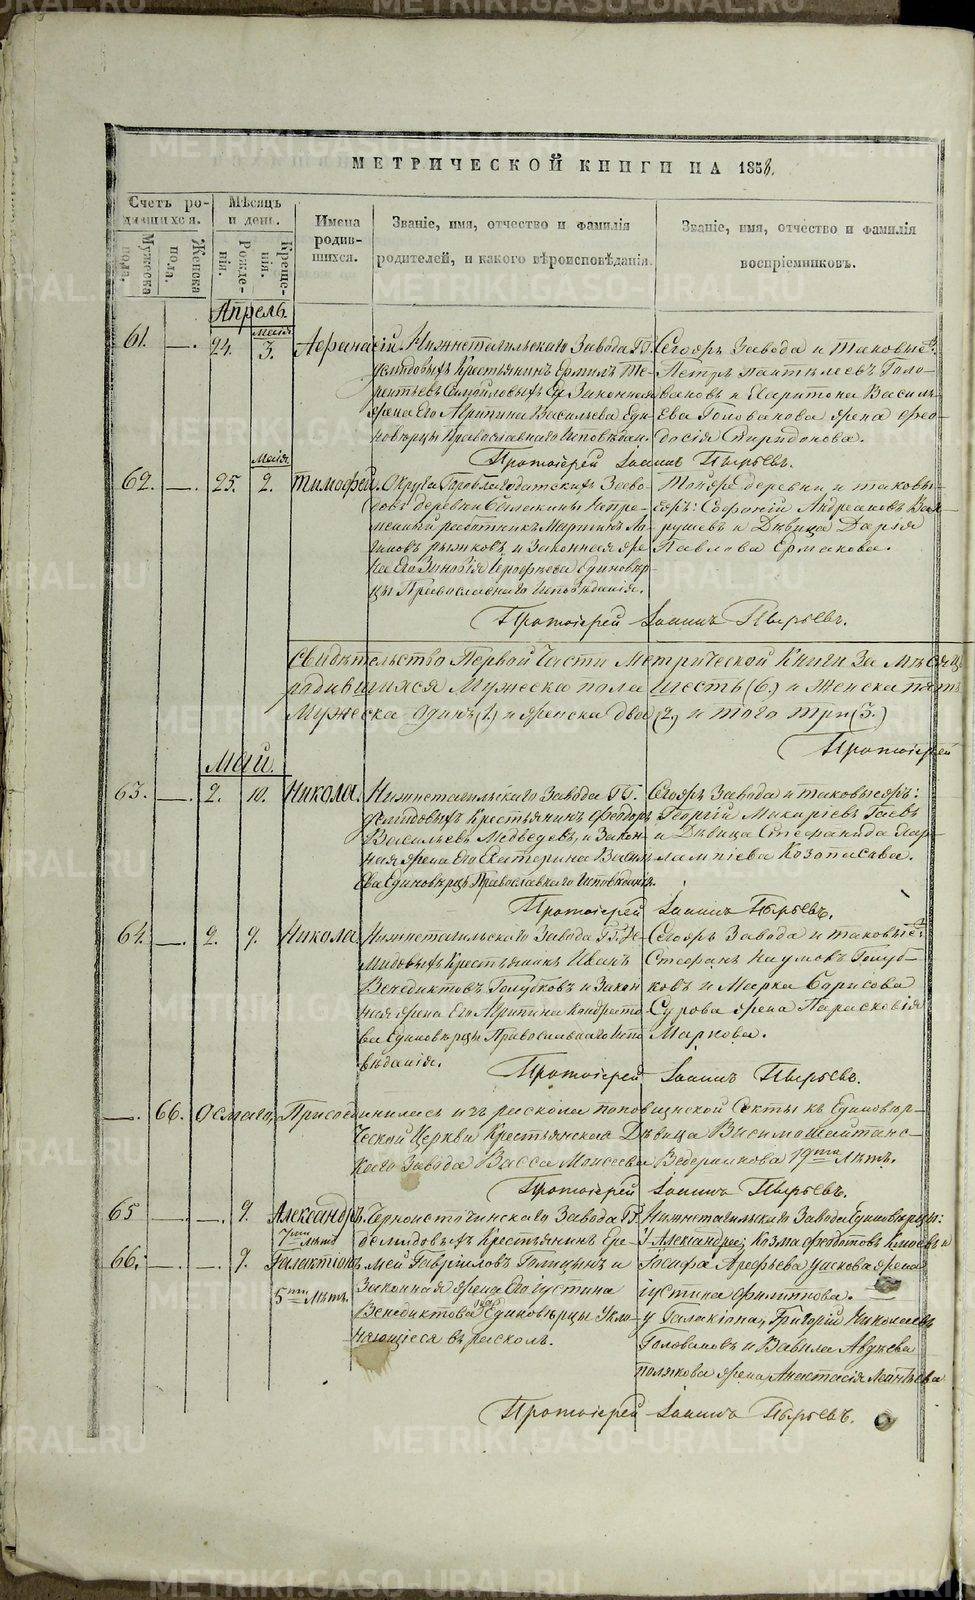 МЕТРИЧЕСКОЙ КНИГИ НА 1858.
Счетъ родившихся.
Мѣсяцъ и день.
Имена родившихся.
Званіе, имя, отчество и фамилія родителей, и какого вѣроисповѣданія.
Званіе, имя, отчество и фамилія воспріемниковъ.
Мужеска пола.
Женска пола.
Рожденія.
Крещенія.
Апрель.
61. — 24. Маія 3. Аѳанасій.
Нижнетагильскаго Завода ГГ.
Демидовыхъ Крестьянинъ Ермилъ Те-
рентьевъ Самойловыхъ Его Законная
жена Его Агрипина Васильева Еди-
новѣрцы Православнаго Исповѣдан.
Тогожъ Завода и таковые:
Петръ Пантелеевъ Голо-
вановъ и Харитона Василь-
ева Голованова жена Ѳео-
досія Спиридонова.
Протоіерей Іоаннъ Пырьевъ.
62. — 25. Маія 2. Тимофей.
Округа Гороблагодатскихъ Заво-
довъ деревни Непре-
менный работникъ Мартинъ Ло-
гиновъ Рыжковъ и Законная же-
на Его Зиновія Ерофѣева Единовѣр-
цы Православнаго Исповѣданія.
Тойже деревни и таковы-
ежъ: Софоній Андреановъ
и Дѣвица Дарья
Павлова Ермакова.
Протоіерей Іоаннъ Пырьевъ.
Свидѣтельство Первой Части Метрической Книги За Мѣсяц
родившихся Мужеска пола Шесть (6.) и Женска пять
Мужеска одинъ (1.) и Женска два (2.) и того три (3.)
Протоіерей
Май.
63. — 2. 10. Никола.
Нижнетагильскаго Завода ГГ.
Демидовыхъ Крестьянинъ Ѳедоръ
Васильевъ Медведевъ, и Закон-
ная жена Его Екатерина Василь
ева Единовѣрцы Православнаго Исповѣданія.
Тогожъ Завода и таковыежъ:
Георгій Макаріевъ Гаевъ
и Дѣвица Стефанида Хар-
лампіева Козопасова.
Протоіерей Іоаннъ Пырьевъ.
64. — 2. 9. Никола
Нижнетагильскаго Завода ГГ. Де-
мидовыхъ Крестьянинъ Иванъ
Венедиктовъ Голубковъ и Закон
ная жена Его Агрипина Кондрато-
ва Единовѣрцы Православнаго Испо
вѣданія.
Тогожъ Завода и таковые:
Стефанъ Наумовъ Голуб-
ковъ и Марка Борисова
Сурова жена Парасковія
Маркова.
Протоіерей Іоаннъ Пырьевъ.
— 66. Осмаго, Присоединилась изъ раскола поповщинской Секты къ Единовѣр-
ческой Церкви Крестьянская Дѣвица Висимошайтанс-
каго Завода Васса Моисеева Ведерникова 19ти Лѣтъ.
Протоіерей Іоаннъ Пырьевъ.
65 — — 9. Александръ.
7ми Лѣтъ
66. — 9. Галактіонъ
5ти Лѣтъ.
Черноисточинскаго Завода ГГ.
Демидовыхъ Крестьянинъ Ере-
мей Гавриловъ Голицынъ и
Законная жена Его Іустина
Венедиктова Единовѣрцы Укло-
няющіеся въ расколъ.
Нижнетагильскаго Завода Единовѣрцы:
У Александра, Козма Ѳедотовъ и
Іосифа Арефьева Ускова жена
Іустина Филиппова.
у Галакіона, Григорій Николаевъ
Головановъ и Вавила Авдѣева
Полякова жена Анастасія
Протоіерей Іоаннъ Пырьевъ.
METRIKI.GASO-URAL.RU